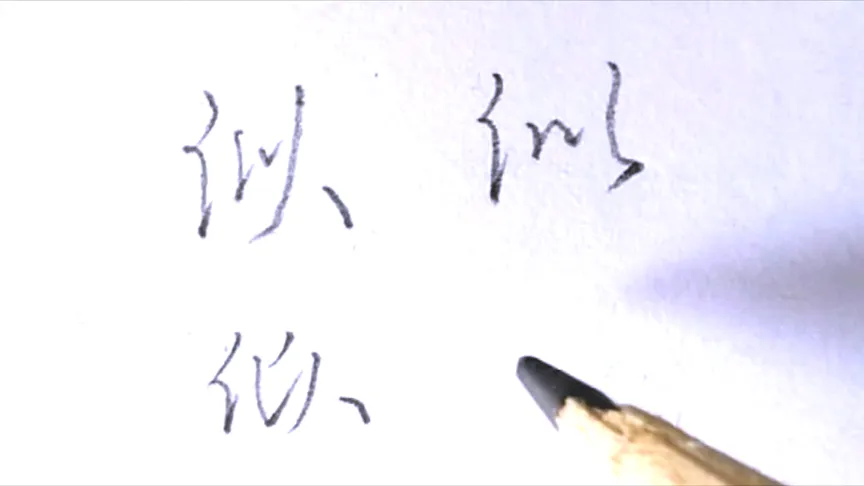 似 似
似